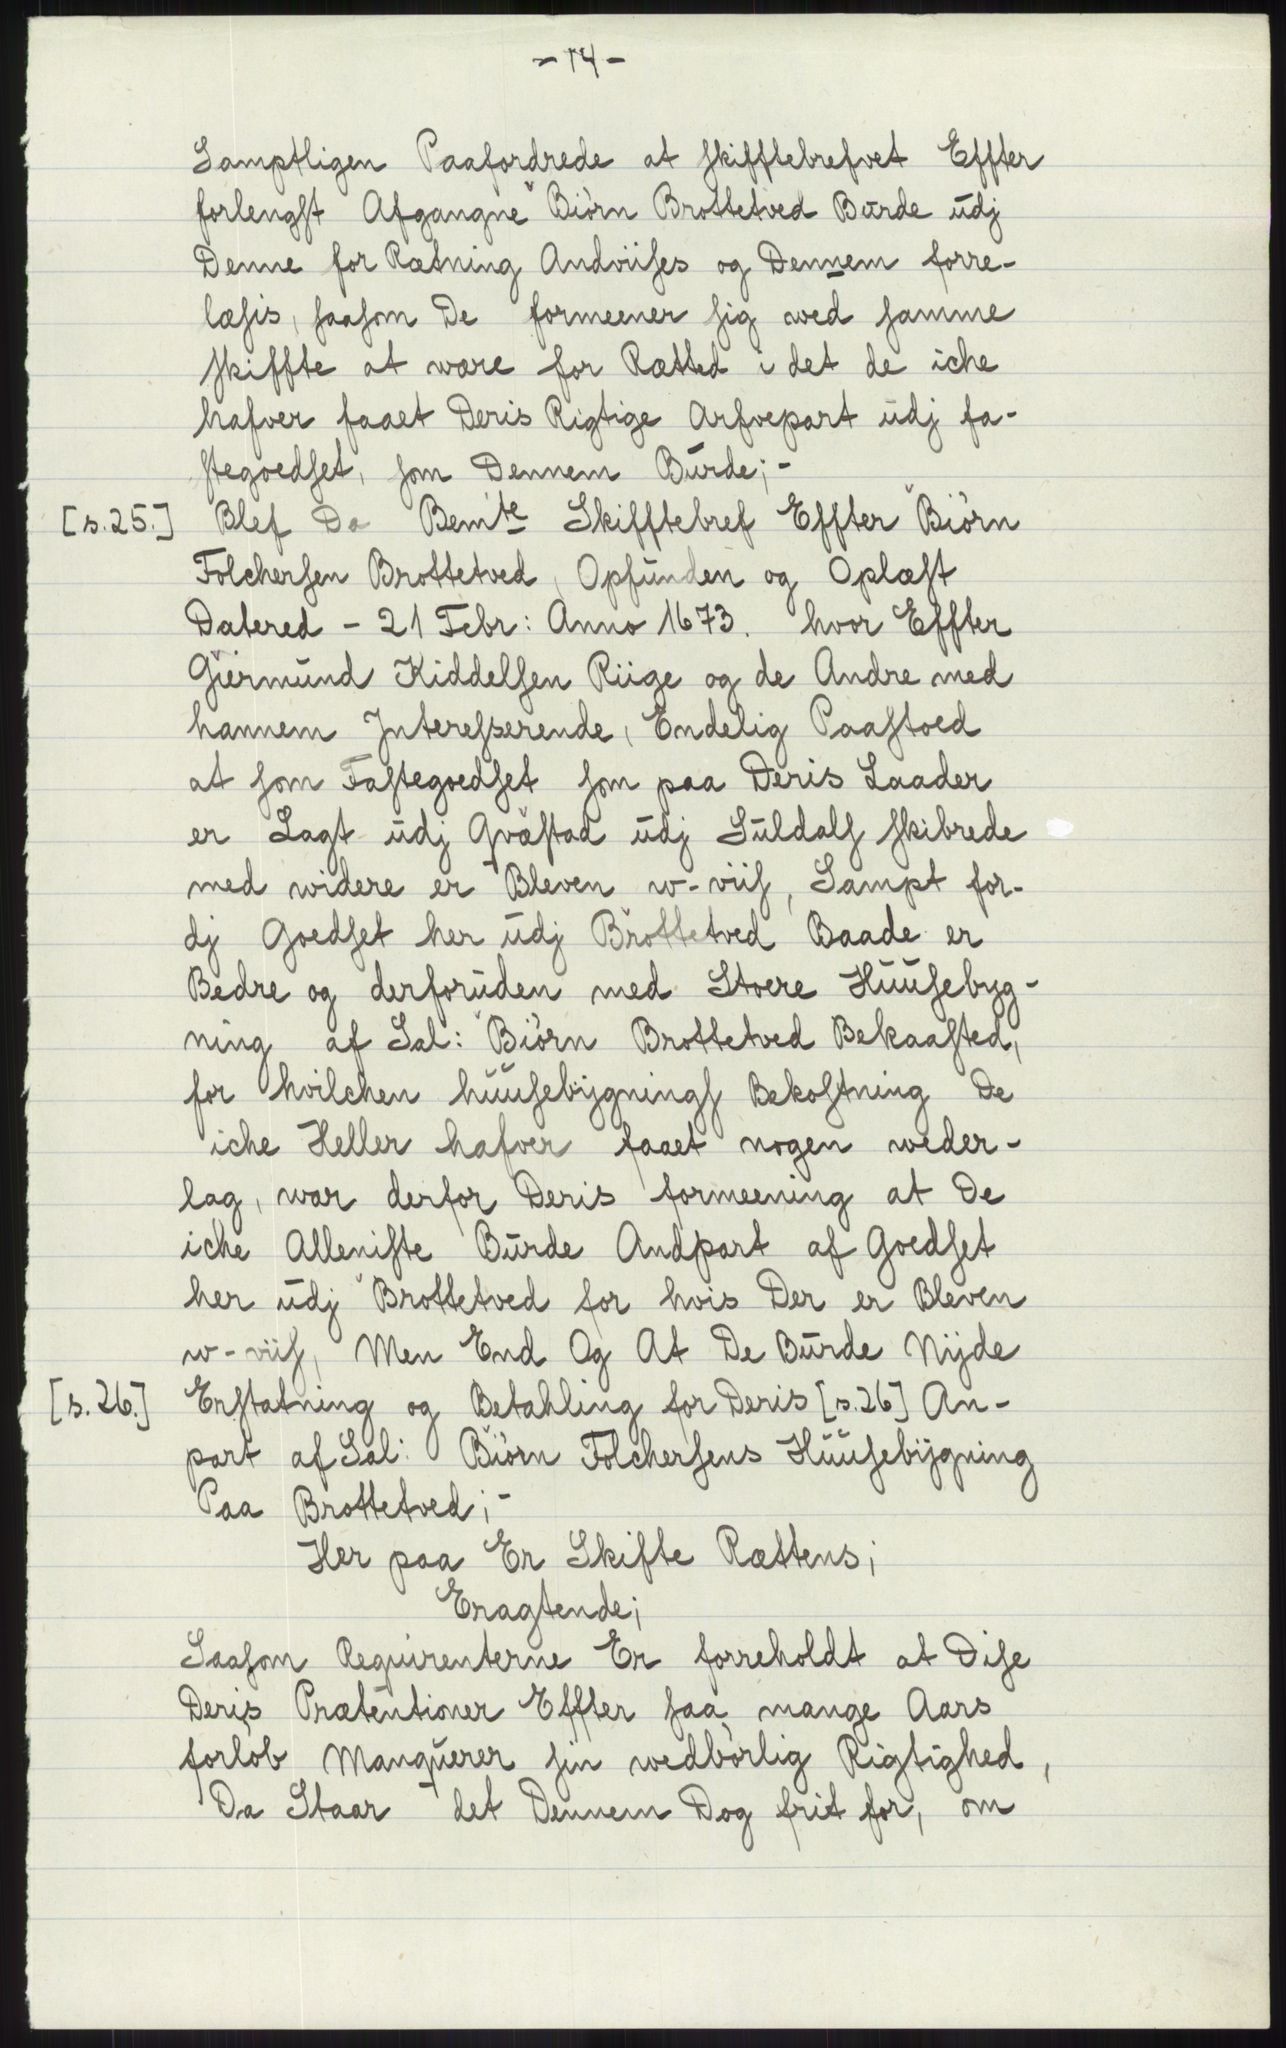 - 14 -
Samptligen Paafordrede at skifftebrefvet Effter
forlengst Afgangne Biörn Brottetved Burde udj
Denne for Rætning Andviises og Dennem forre-
læsis, saasom De formeener sig wed samme
skiffte at wære for Rætted i det de iche
hafver faaet Deris Rigtige Arfvepart udj fa-
stegoedset, som Dennem Burde; -
[s.25.] Blef Da Bemte Skifftebref Effter Biörn
Folchersen Brottetved, Opfunden og Oplæst
Datered - 21 Febr: Anno 1673. hvor Effter
Giermund Kiddelsen Riige og de Andre med
hannem Interesserende, Endelig Paastoed
at som Fastegoedset som paa Deris Laader
er Lagt udj Qvæstad udj Suldals skibrede
med widere er Bleven w-viis, Sampt for-
dj Goedset her udj Brottetved Baade er
Bedre og derforuden med Stoere Huusebyg-
ning af Sal: Biörn Brottetved Bekaasted,
for hvilchen huusebÿgnings Bekostning De
iche Heller hafver faaet nogen weder-
lag, war derfor Deris formeening at De
iche Alleniste Burde Andpart af Goedset
her udj Brottetved for hvis Der er Bleven
w-viis, Men End Og At De Burde Nijde
[s.26.] Erstatning og Betahling for Deris [s.26] An-
part af Sal: Biörn Folchersens Huusebÿgning
Paa Brottetved; -
Her paa Er Skifte Rættens;
Eragtende;
Saasom Requirenterne Er forreholdt at Dise
Deris Prætentioner Effter saa mange Aars
forlöb Manquerer sin wedbörlig Rigtighed,
Da Staar det Dennem Dog frit for, om